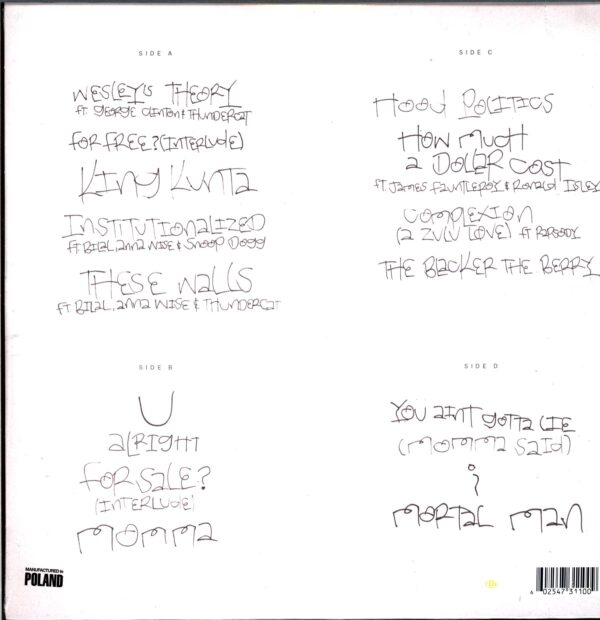 SIDE A
WESLEY'S THEORY
ft. GEORGE CLINTON & THUNDERCAT
FOR FREE? (INTERLUDE)
KING KUNTA
INSTITUTIONALIZED
ft BILAL, ANNA WISE & SNOOP DOGG
THESE WALLS
ft BILAL, ANNA WISE & THUNDERCAT
SIDE B
U
ALRIGHT
FOR SALE?
(INTERLUDE)
MOMMA
SIDE C
HOOD POLITICS
HOW MUCH
A DOLLAR COST
ft. JAMES FAUNTLEROY & RONALD ISLEY
COMPLEXION
(A ZULU LOVE) ft RAPSODY
THE BLACKER THE BERRY
SIDE D
YOU AINT GOTTA LIE
(MOMMA SAID)
i
MORTAL MAN
MANUFACTURED IN
POLAND
6 02547 31100